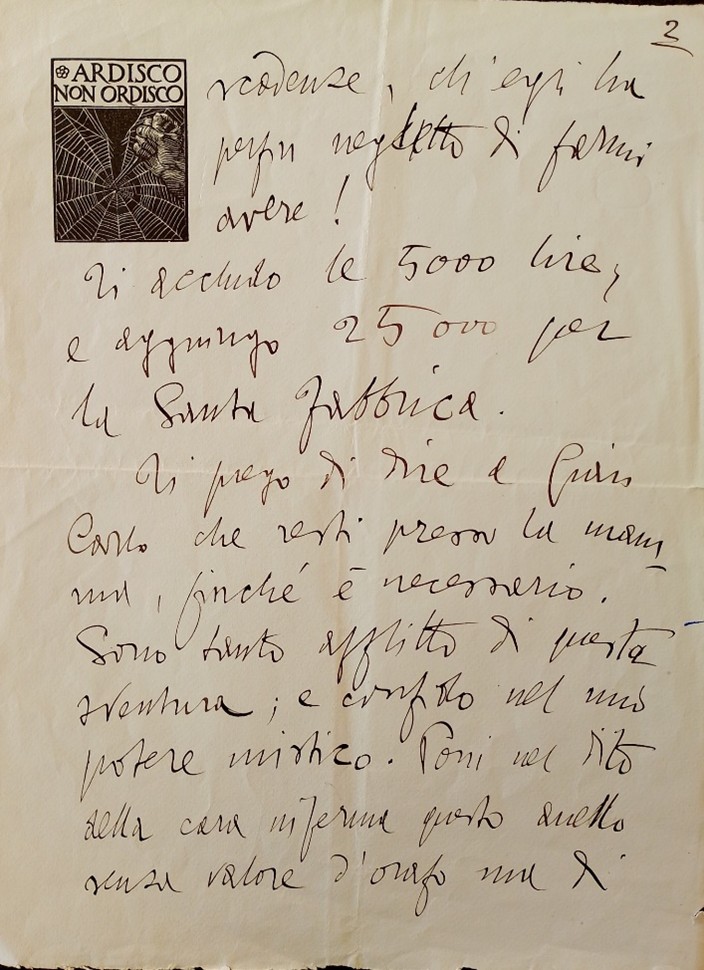 2
ARDISCO
NON ORDISCO
scadenze, ch'egli ha
perfin negletto di farmi
avere!
Ti accludo le 5000 lire,
e aggiungo 25000 per
la Santa Fabbrica.
Ti prego di dire a Gian
Carlo che resti presso la mam
ma, finché è necessario.
Sono tanto afflitto di questa
sventura; e confido nel mio
potere mistico. Poni nel dito
della cara inferma questo anello
senza valore d'orafo ma di